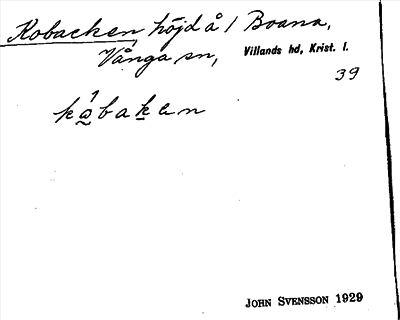 Kobacken, höjd å 1 Boana,
Vånga sn, Villands hd, Krist. l.
39
kobaken
JOHN SVENSSON 1929